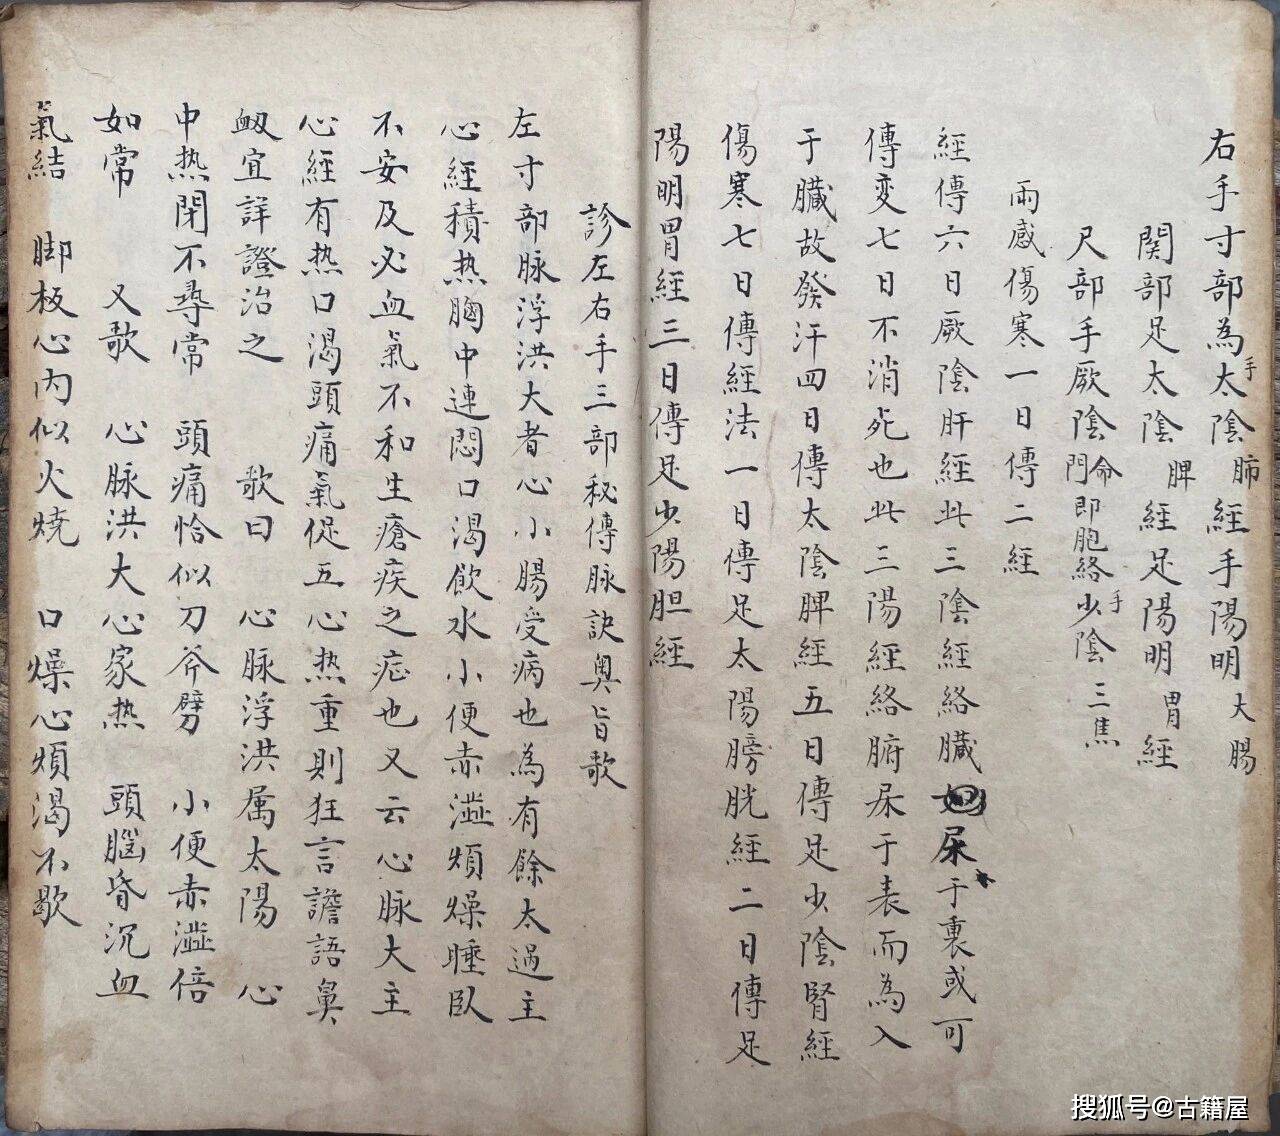 右手寸部為手太陰肺經手陽明大腸
関部足太陰脾經足陽明胃經
尺部手厥陰命門即胞絡手少陰三焦
兩感傷寒一日傳二經
經傳六日厥陰肝經此三陰經絡臟屎于裏或可
傳变七日不消死也此三陽經絡腑屎于表而為入
于臟故發汗四日傳太陰脾經五日傳足少陰腎經
傷寒七日傳經法一日傳足太陽膀胱經二日傳足
陽明胃經三日傳足少陽胆經
診左右手三部秘傳脉訣奧旨歌
左寸部脉浮洪大者心小腸受病也為有餘太過主
心經積热胸中連悶口渴飲水小便赤澁煩燥睡臥
不安及必血氣不和生瘡疾之症也又云心脉大主
心經有热口渴頭痛氣促五心热重則狂言譫語鼻
衂宜詳證治之 歌曰 心脉浮洪属太陽 心
中热閉不尋常 頭痛恰似刀斧劈 小便赤澁倍
如常 又歌 心脉洪大心家热 頭腦昏沉血
氣結 脚板心內似火燒 口燥心煩渴不歇
搜狐号@古籍屋